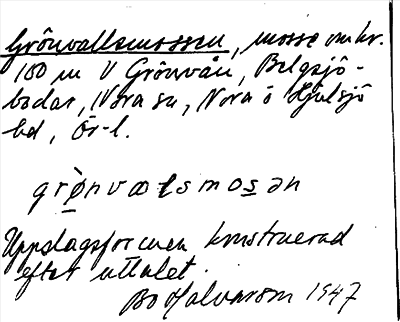 Grönvallsmossen, mosse omkr.
100 m V Grönvån, Bolgsjö-
bodar, Nora sn, Nora o Hjulsjö
bd, Ör-l.
grø̀nvałsmosən
Uppslagsformen konstruerad
efter uttalet.
Bo Halvarson 1947